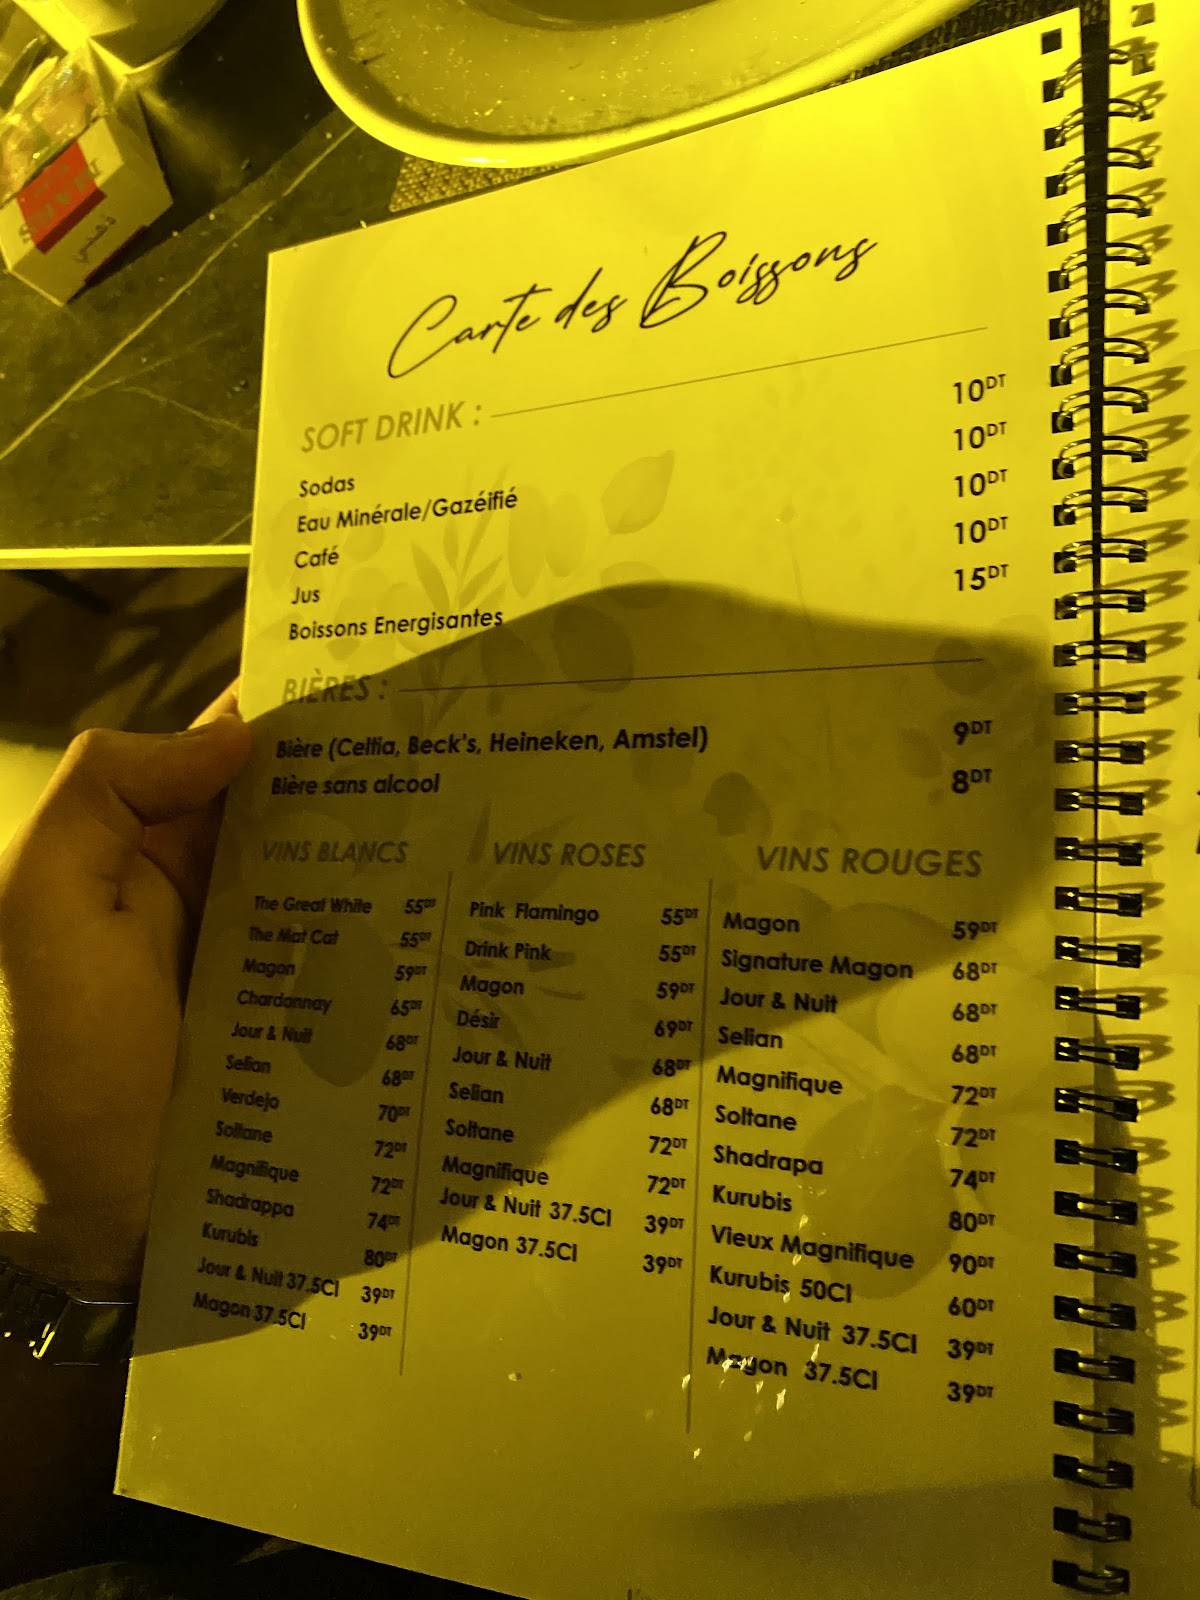 Carte des Boissons
SOFT DRINK :
Sodas 10DT
Eau Minérale/Gazéifié 10DT
Café 10DT
Jus 10DT
Boissons Energisantes 15DT
BIÈRES :
Bière (Celtia, Beck's, Heineken, Amstel) 9DT
Bière sans alcool 8DT
VINS BLANCS
The Great White 55DT
The Mat Cat 55DT
Magon 59DT
Chardonnay 65DT
Jour & Nuit 68DT
Selian 68DT
Verdejo 70DT
Soltane 72DT
Magnifique 72DT
Shadrappa 74DT
Kurubis 80DT
Jour & Nuit 37.5Cl 39DT
Magon 37.5Cl 39DT
VINS ROSES
Pink Flamingo 55DT
Drink Pink 55DT
Magon 59DT
Désir 69DT
Jour & Nuit 68DT
Selian 68DT
Soltane 72DT
Magnifique 72DT
Jour & Nuit 37.5Cl 39DT
Magon 37.5Cl 39DT
VINS ROUGES
Magon 59DT
Signature Magon 68DT
Jour & Nuit 68DT
Selian 68DT
Magnifique 72DT
Soltane 72DT
Shadrapa 74DT
Kurubis 80DT
Vieux Magnifique 90DT
Kurubis 50Cl 60DT
Jour & Nuit 37.5Cl 39DT
Magon 37.5Cl 39DT